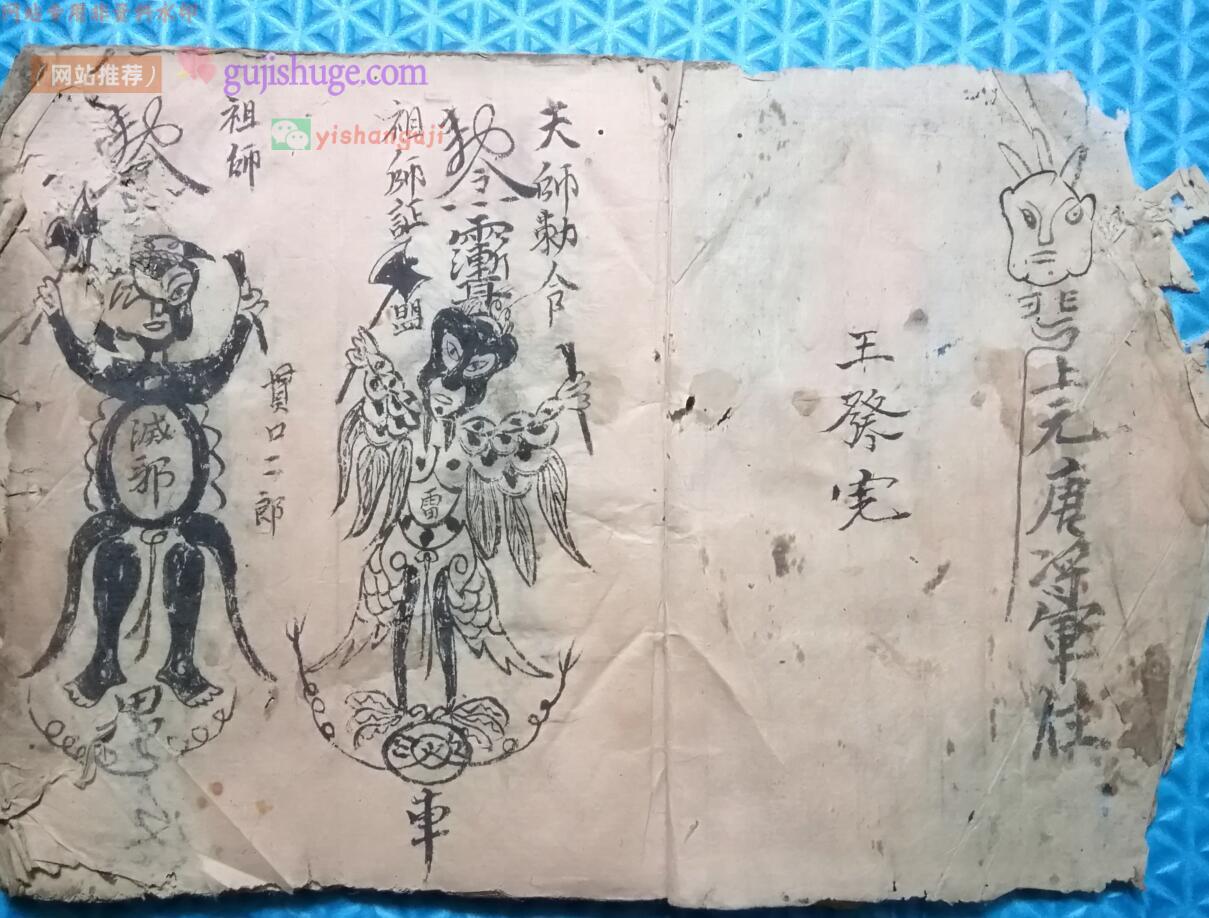 网站专用非资料水印
网站推荐）
gujishuge.com
yishanguji
上元唐將軍位
王發憲
天師勅令
勅令
祖師証盟
火雷
車
祖師
勅令
貫口二郎
滅邪